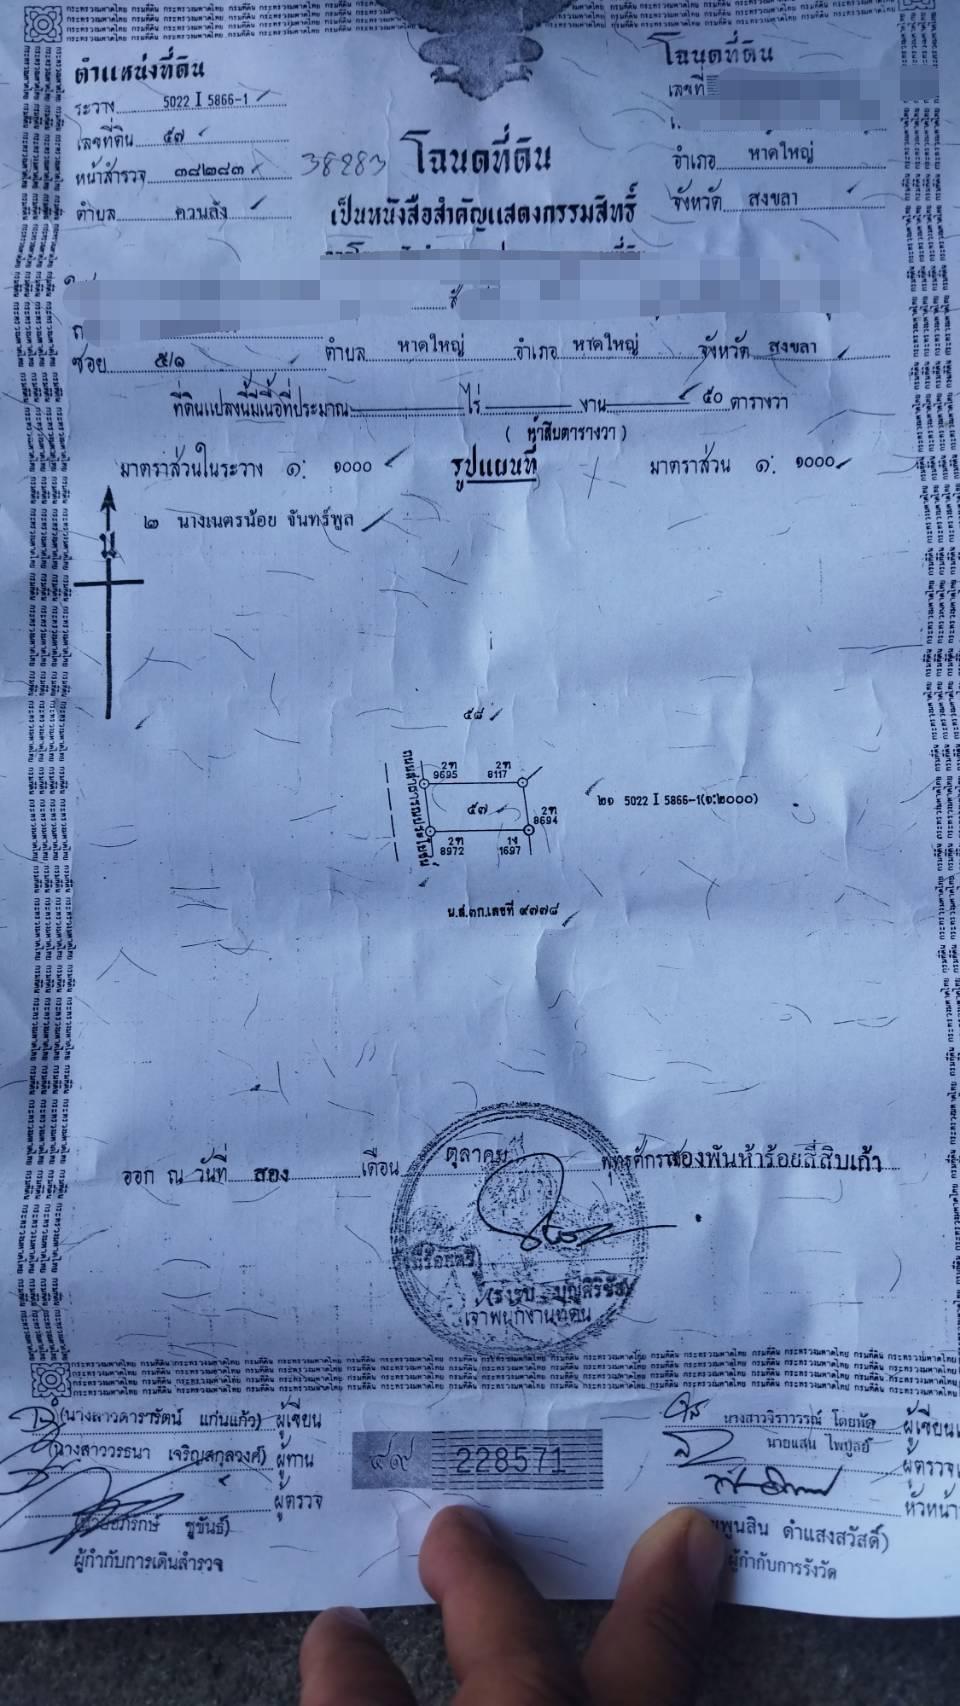 ตำแหน่งที่ดิน
ระวาง 5022 I 5866-1
เลขที่ดิน ๕๗
หน้าสำรวจ ๓๘๒๘๓
ตำบล ควนลัง
38283
โฉนดที่ดิน
เลขที่
อำเภอ หาดใหญ่
จังหวัด สงขลา
โฉนดที่ดิน
เป็นหนังสือสำคัญแสดงกรรมสิทธิ์
ซอย ๕/๑ ตำบล หาดใหญ่ อำเภอ หาดใหญ่ จังหวัด สงขลา
ที่ดินแปลงนี้มีเนื้อที่ประมาณ ไร่ งาน ๕๐ ตารางวา
( ห้าสิบตารางวา )
มาตราส่วนในระวาง ๑: ๑๐๐๐ รูปแผนที่ มาตราส่วน ๑: ๑๐๐๐
น
๒ นางเนตรน้อย จันทร์พูล
๕๘
ถนนสาธารณประโยชน์
2ฑ 9695
2ฑ 8117
๕๗
2ฑ 8694
2ฑ 8972
1ง 1697
๒๑ 5022 I 5866-1(๑:๒๐๐๐)
น.ส.๓ก.เลขที่ ๙๗๗๘
ออก ณ วันที่ สอง เดือน ตุลาคม พุทธศักราชสองพันห้าร้อยสี่สิบเก้า
เจ้าพนักงานที่ดิน
(นางสาวดารารัตน์ แก่นแก้ว) ผู้เขียน
(นางสาววรรธนา เจริญสกุลวงศ์) ผู้ทาน
ผู้ตรวจ
ชูขันธ์)
ผู้กำกับการเดินสำรวจ
๔๙ 228571
นางสาวจิราวรรณ์ โดยพัด
นายแสน ไพบูลย์
พูนสิน ดำแสงสวัสดิ์)
ผู้กำกับการรังวัด